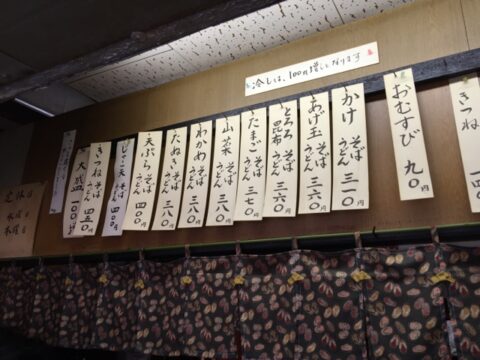 冷しは、100円増しになります
きつね
おむすび 九〇
かけ そば うどん 三一〇円
あげ玉 そば うどん 三六〇円
とろろ昆布 そば うどん 三六〇円
たまご そば うどん 三七〇円
山菜 そば うどん 三八〇円
わかめ そば うどん 三八〇円
たぬき そば うどん 三八〇円
天ぷら そば うどん 四〇〇円
じゃこ天 そば うどん 四〇〇円
きつね そば うどん 四五〇円
大盛 一〇〇円
定休日
水曜日
木曜日